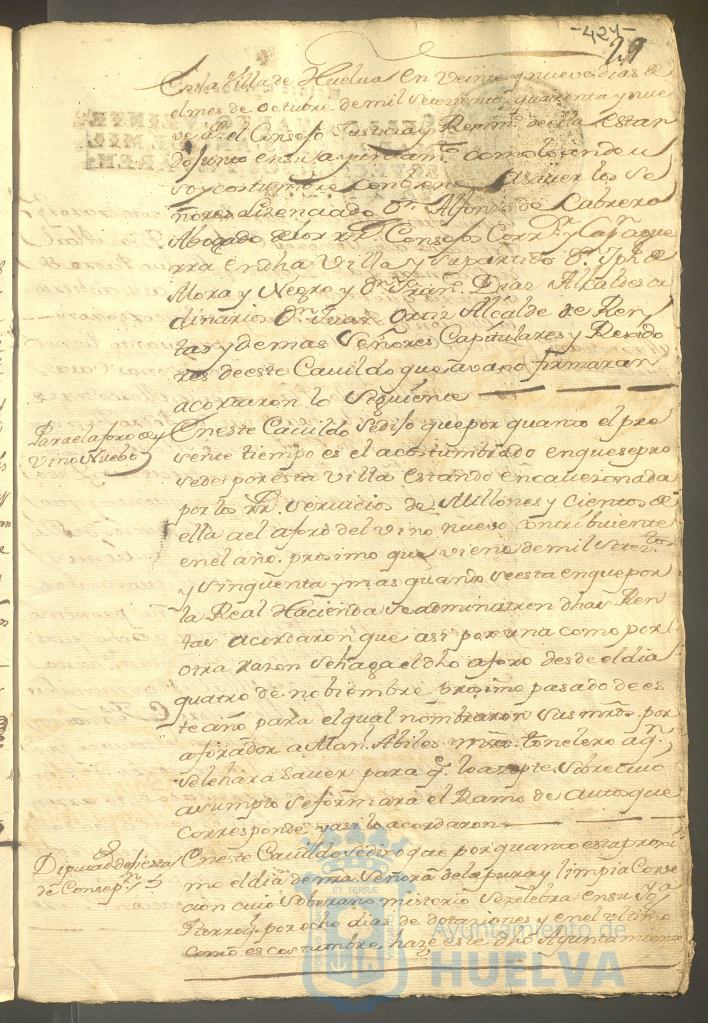 -424-
En la Villa de Huelva en veinte y nueve dias de
el mes de octubre de mil setecientos quarenta y nue
ve as. el Consejo Justicia y Regimto. de ella estan
do junto en su ayuntamto. como lo tiene de u
so y costumbre combiene asaver los Se
ñores Lisenciado Dn. Alfonso de Cabrera
Abogado de los RRs. Consejos Corrdr. y Capn. a gue
rra en dha Villa y su partido Dn. Jph. de
Mora y Negro y Dn. Fran. Diaz Alcaldes or
dinarios Dn. Juan Ortiz Alcalde de Ren
tas y demas Señores Capitulares y Rexido
res de este Cavildo que avajo firmaran
acordaron lo siguiente
Para el aforo de
Vino Nuebo
En este Cavildo se dijo que por quanto el pre
sente tiempo es el acostumbrado en que se pro
sede por esta Villa estando encavezonada
por los RRs. servicios de Millones y Cientos de
ella a el aforo del vino nuevo contribuiente
en el año proximo que viene de mil setectos.
y sinquenta y mas quando se esta en que por
la Real Hacienda se administren dhas Ren
tas acordaron que asi por una como por
otra razon se haga el dho aforo desde el dia
quatro de nobiembre proximo pasado de es
te año para el qual nombraron sus mrds. por
aforador a Man. Abiles mro. tonelero aqn.
se le hara saver para q. lo azepte sobre cuio
asumpto se formara el Ramo de autos que
corresponde y asi lo acordaron
Diputads. de fiesta
de Consepn.
En este Cavildo se dixo que por quanto esta proxi
mo el dia de nra Señora de la pura y limpia Conse
cion cuio soberano misterio se zelebra en su Yga.
Parroql. por ocho dias de dotaziones y en el ultimo
como es costumbre haze este dho Ayuntamiento
Ayuntamiento de
HUELVA